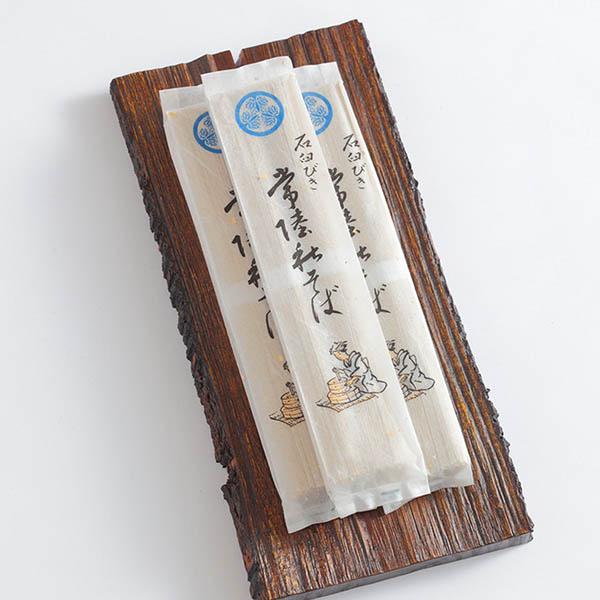 石臼びき
常陸秋そば
石臼びき
常陸秋そば
常陸秋そば